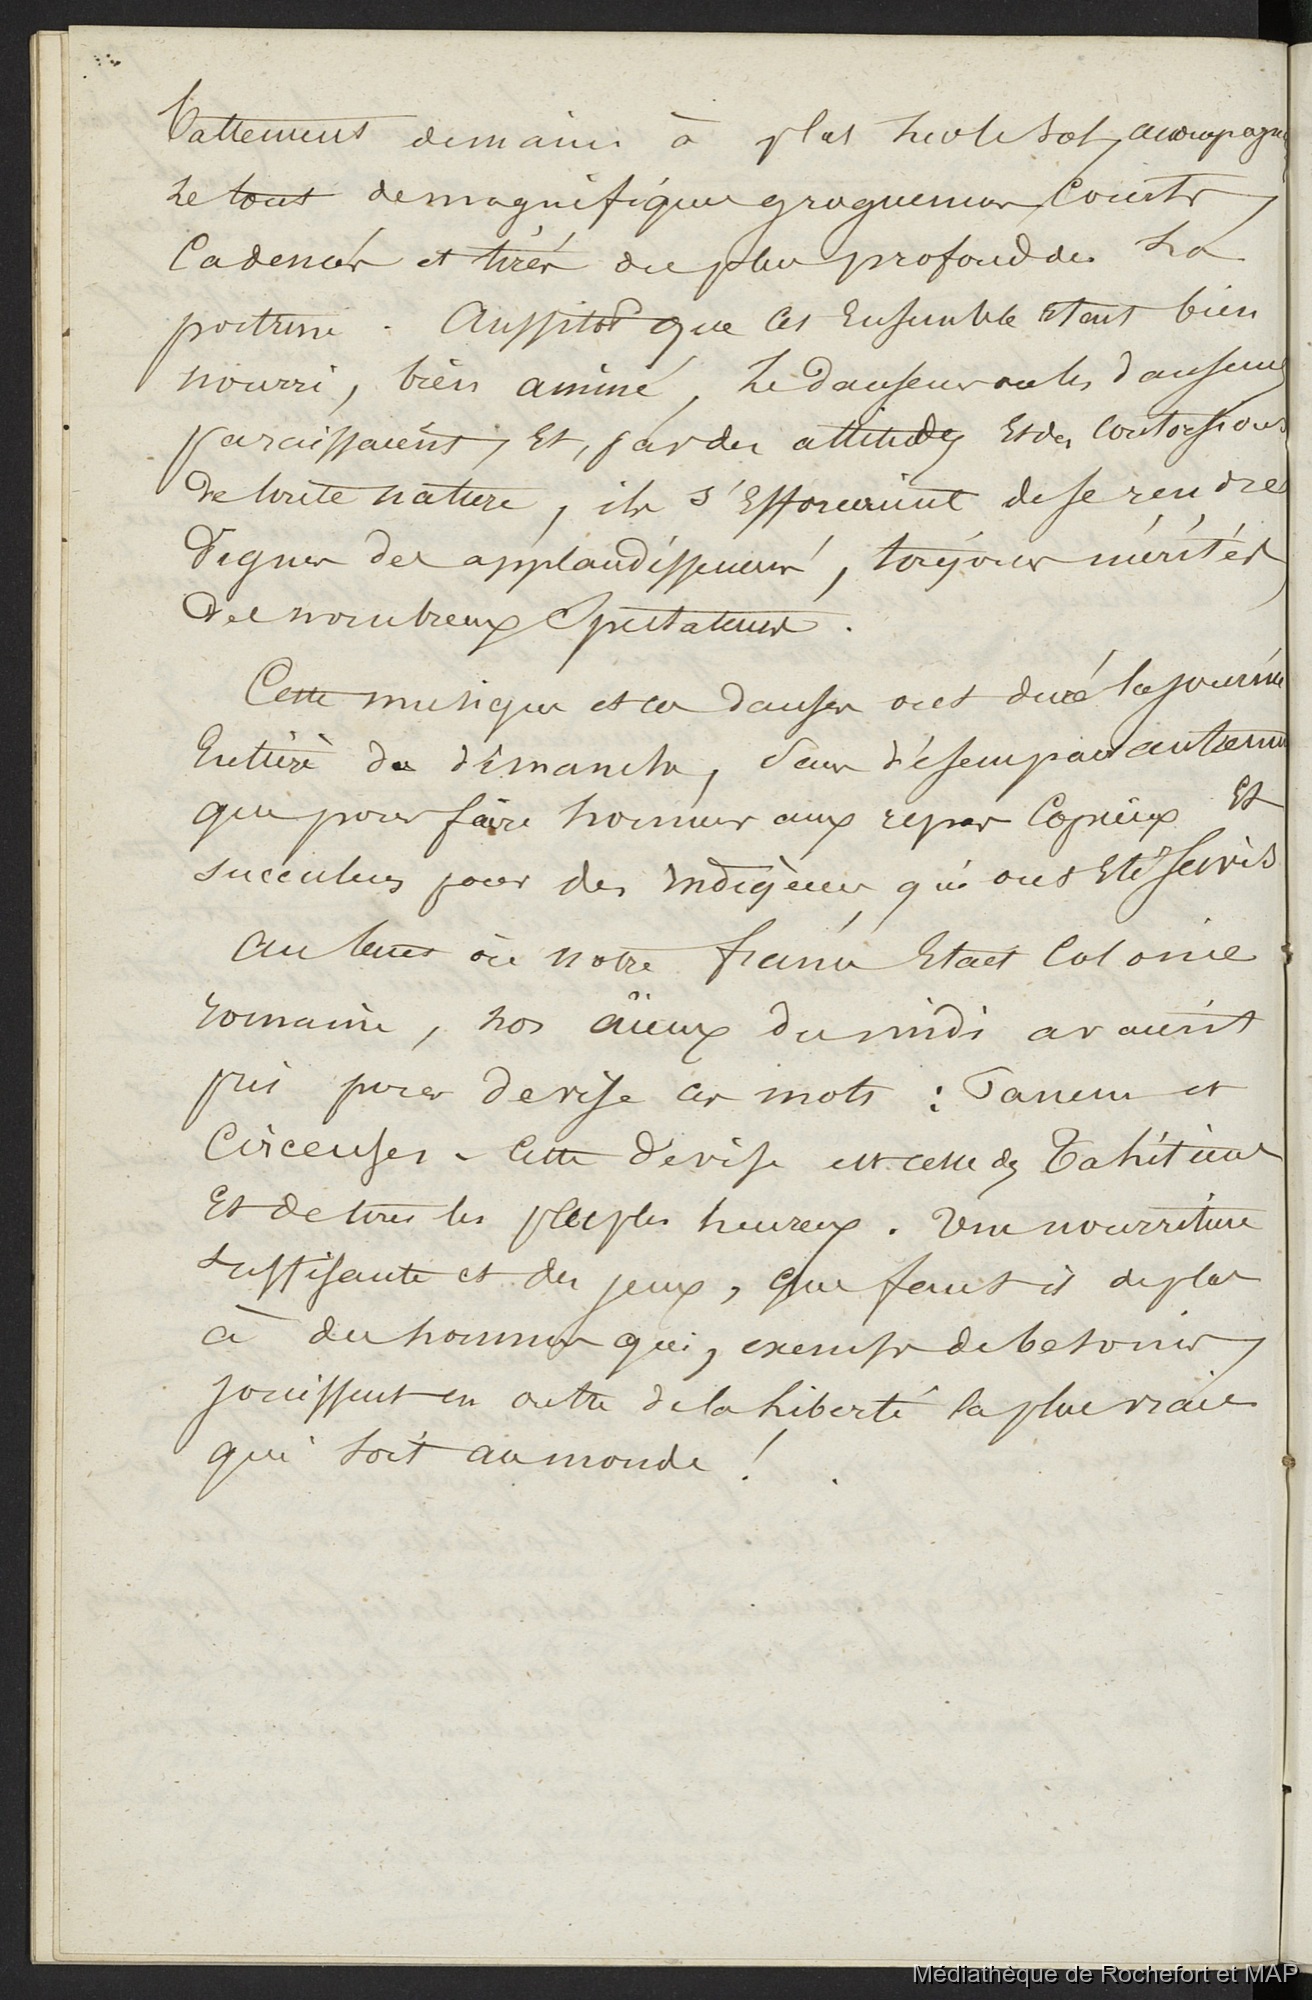 battements de mains à plat sur le sol, accompagné
le tout de magnifiques grognements, courts,
cadencés et tirés du plus profond de la
poitrine. Aussitôt que cet Ensemble Etait bien
nourri, bien animé, le danseur ou les danseurs
paraissaient, Et, par des attitudes Et des Contorsions
de toute nature, ils s'Efforçaient de se rendre
dignes des applaudissements, toujours mérités,
des nombreux Spectateurs.
Cette musique et ces danses ont duré la journée
Entière du dimanche, sans désemparer autrement
que pour faire honneur aux repas Copieux Et
succulents pour des indigènes qui ont Eté servis
Au temps où notre france Etait Colonie
romaine, nos aïeux du midi avaient
pris pour devise ces mots : Panem et
Circenses - Cette dévise est celle des Tahitiens
Et de tous les peuples heureux. Une nourriture
suffisante et des jeux, que faut il de plus
à des hommes qui, exempts de besoins,
jouissent en outre de la liberté la plus vraie
qui soit au monde !
Médiathèque de Rochefort et MAP